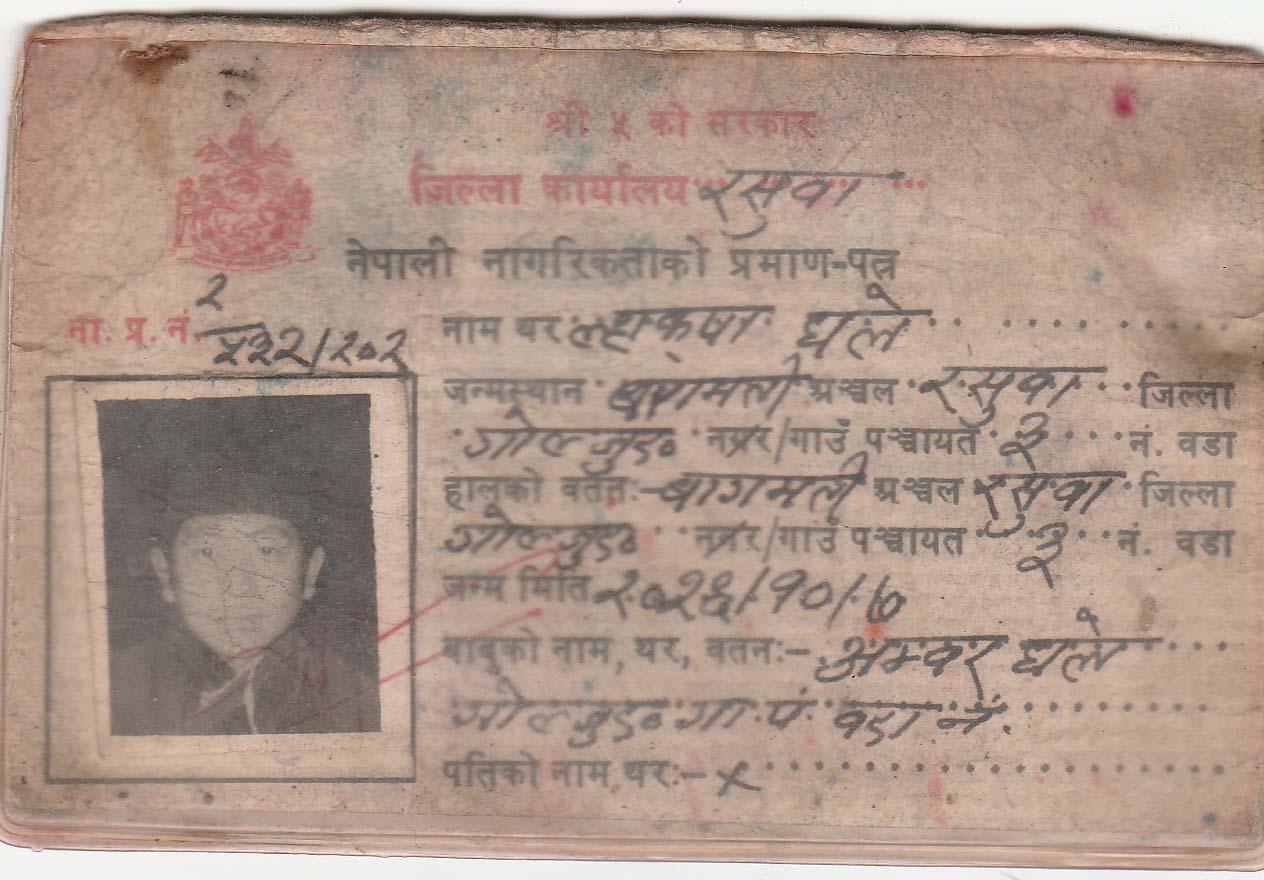 श्री ५ को सरकार
जिल्ला कार्यालय रसुवा
नेपाली नागरिकताको प्रमाण-पत्र
२
ना. प्र. नं.
नाम थर घले
जन्मस्थान बागमती अञ्चल रसुवा जिल्ला
गोल्जुङ नगर/गाउँ पञ्चायत ३ नं. वडा
हालको वतन:- बागमती अञ्चल रसुवा जिल्ला
गोल्जुङ नगर/गाउँ पञ्चायत ३ नं. वडा
जन्म मिति २०२६/१०/७
बाबुको नाम, थर, वतन:- अम्बर घले
गोल्जुङ गा. पं. वडा नं.
पतिको नाम थर:- x